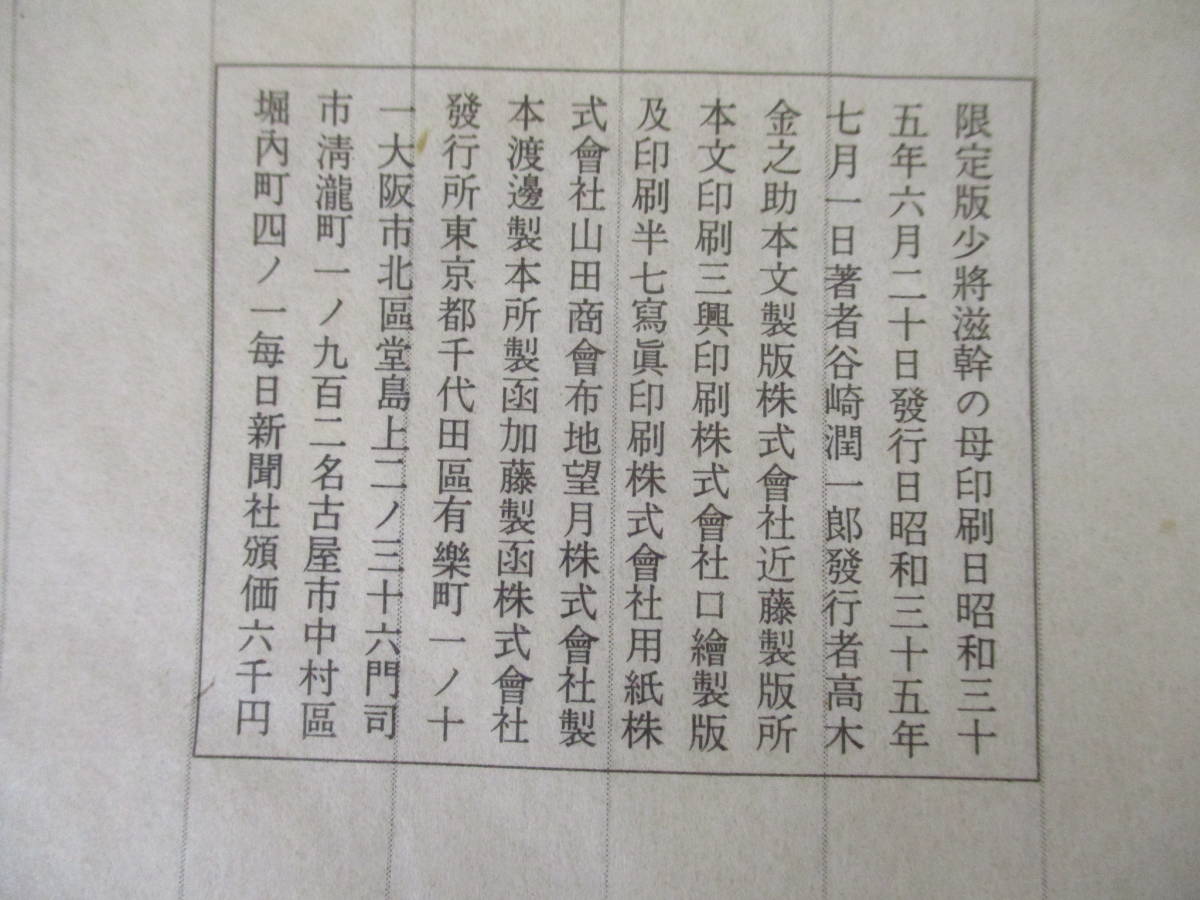 限定版少將滋幹の母印刷日昭和三十
五年六月二十日發行日昭和三十五年
七月一日著者谷崎潤一郎發行者高木
金之助本文製版株式會社近藤製版所
本文印刷三興印刷株式會社口繪製版
及印刷半七寫眞印刷株式會社用紙株
式會社山田商會布地望月株式會社製
本渡邊製本所製函加藤製函株式會社
發行所東京都千代田區有樂町一ノ十
一大阪市北區堂島上二ノ三十六門司
市淸瀧町一ノ九百二名古屋市中村區
堀內町四ノ一每日新聞社頒価六千円